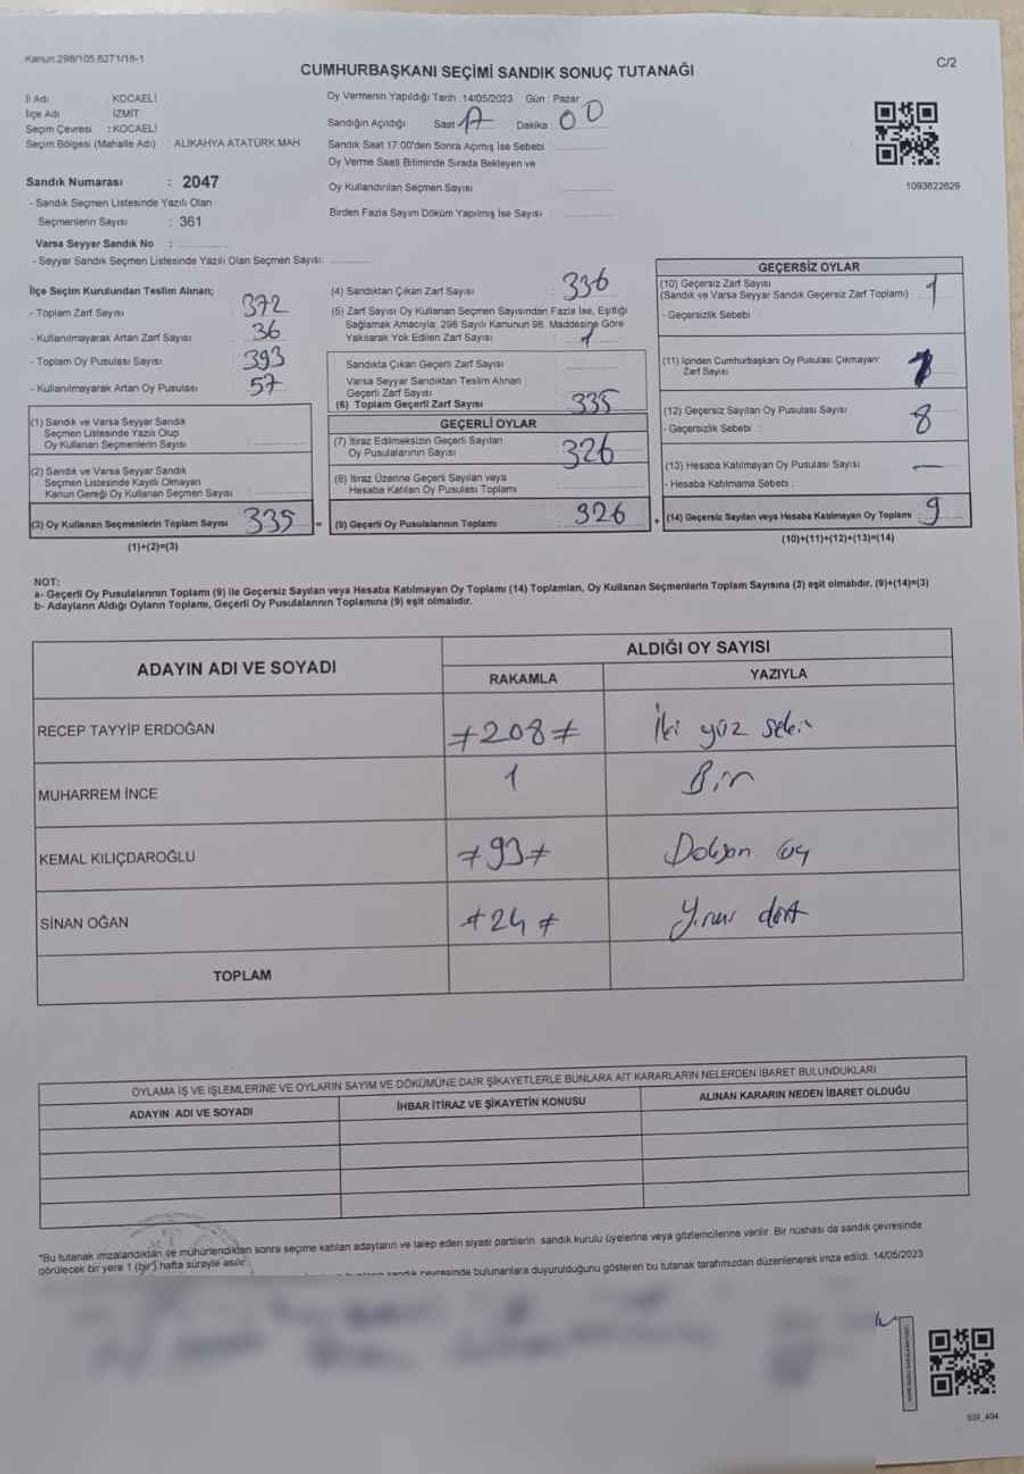 Kanun.298/105.6271/18-1
C/2
CUMHURBAŞKANI SEÇİMİ SANDIK SONUÇ TUTANAĞI
İl Adı KOCAELİ
İlçe Adı İZMİT
Seçim Çevresi : KOCAELİ
Seçim Bölgesi (Mahalle Adı) ALİKAHYA ATATÜRK MAH
Sandık Numarası : 2047
- Sandık Seçmen Listesinde Yazılı Olan
Seçmenlerin Sayısı : 361
Varsa Seyyar Sandık No :
- Seyyar Sandık Seçmen Listesinde Yazılı Olan Seçmen Sayısı:
Oy Vermenin Yapıldığı Tarih :14/05/2023 Gün : Pazar
Sandığın Açıldığı Saat 17 Dakika : 00
Sandık Saat 17:00'den Sonra Açılmış İse Sebebi
Oy Verme Saati Bitiminde Sırada Bekleyen ve
Oy Kullandırılan Seçmen Sayısı
Birden Fazla Sayım Döküm Yapılmış İse Sayısı
1093622629
İlçe Seçim Kurulundan Teslim Alınan;
- Toplam Zarf Sayısı 372
- Kullanılmayarak Artan Zarf Sayısı 36
- Toplam Oy Pusulası Sayısı 393
- Kullanılmayarak Artan Oy Pusulası 57
(1) Sandık ve Varsa Seyyar Sandık
Seçmen Listesinde Yazılı Olup
Oy Kullanan Seçmenlerin Sayısı
(2) Sandık ve Varsa Seyyar Sandık
Seçmen Listesinde Kayıtlı Olmayan
Kanun Gereği Oy Kullanan Seçmen Sayısı
(3) Oy Kullanan Seçmenlerin Toplam Sayısı 335 =
(1)+(2)=(3)
(4) Sandıktan Çıkan Zarf Sayısı : 336
(5) Zarf Sayısı Oy Kullanan Seçmen Sayısından Fazla İse, Eşitliği
Sağlamak Amacıyla; 298 Sayılı Kanunun 98. Maddesine Göre
Yakılarak Yok Edilen Zarf Sayısı : 1
Sandıkta Çıkan Geçerli Zarf Sayısı
Varsa Seyyar Sandıktan Teslim Alınan
Geçerli Zarf Sayısı
(6) Toplam Geçerli Zarf Sayısı 335
GEÇERLİ OYLAR
(7) İtiraz Edilmeksizin Geçerli Sayılan
Oy Pusulalarının Sayısı : 326
(8) İtiraz Üzerine Geçerli Sayılan veya
Hesaba Katılan Oy Pusulası Toplamı
(9) Geçerli Oy Pusulalarının Toplamı 326 +
GEÇERSİZ OYLAR
(10) Geçersiz Zarf Sayısı
(Sandık ve Varsa Seyyar Sandık Geçersiz Zarf Toplamı) 1
- Geçersizlik Sebebi :
(11) İçinden Cumhurbaşkanı Oy Pusulası Çıkmayan
Zarf Sayısı
(12) Geçersiz Sayılan Oy Pusulası Sayısı 8
- Geçersizlik Sebebi
(13) Hesaba Katılmayan Oy Pusulası Sayısı —
- Hesaba Katılmama Sebebi :
(14) Geçersiz Sayılan veya Hesaba Katılmayan Oy Toplamı : 9
(10)+(11)+(12)+(13)=(14)
NOT:
a- Geçerli Oy Pusulalarının Toplamı (9) ile Geçersiz Sayılan veya Hesaba Katılmayan Oy Toplamı (14) Toplamları, Oy Kullanan Seçmenlerin Toplam Sayısına (3) eşit olmalıdır. (9)+(14)=(3)
b- Adayların Aldığı Oyların Toplamı, Geçerli Oy Pusulalarının Toplamına (9) eşit olmalıdır.
ADAYIN ADI VE SOYADI
ALDIĞI OY SAYISI
RAKAMLA YAZIYLA
RECEP TAYYİP ERDOĞAN ≠208≠ İki yüz sekiz
MUHARREM İNCE 1 Bir
KEMAL KILIÇDAROĞLU ≠93≠ Doksan üç
SİNAN OĞAN ≠24≠ Yirmi dört
TOPLAM
OYLAMA İŞ VE İŞLEMLERİNE VE OYLARIN SAYIM VE DÖKÜMÜNE DAİR ŞİKAYETLERLE BUNLARA AİT KARARLARIN NELERDEN İBARET BULUNDUKLARI
ADAYIN ADI VE SOYADI İHBAR İTİRAZ VE ŞİKAYETİN KONUSU ALINAN KARARIN NEDEN İBARET OLDUĞU
*Bu tutanak imzalandıktan ve mühürlendikten sonra seçime katılan adayların ve talep eden siyasi partilerin sandık kurulu üyelerine veya gözlemcilerine verilir. Bir nüshası da sandık çevresinde
görülecek bir yere 1 (bir) hafta süreyle asılır.
sandık çevresinde bulunanlara duyurulduğunu gösteren bu tutanak tarafımızdan düzenlenerek imza edildi. 14/05/2023
SSI_404